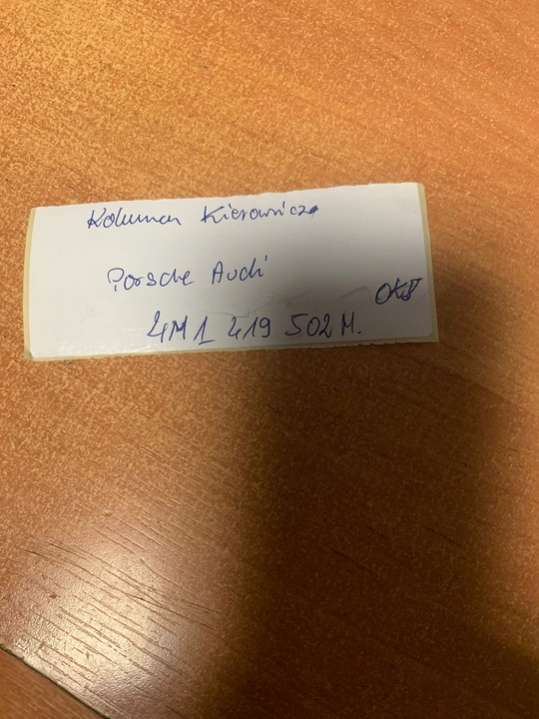 Kolumna Kierownicza
Porsche Audi
4M1 419 502 M.